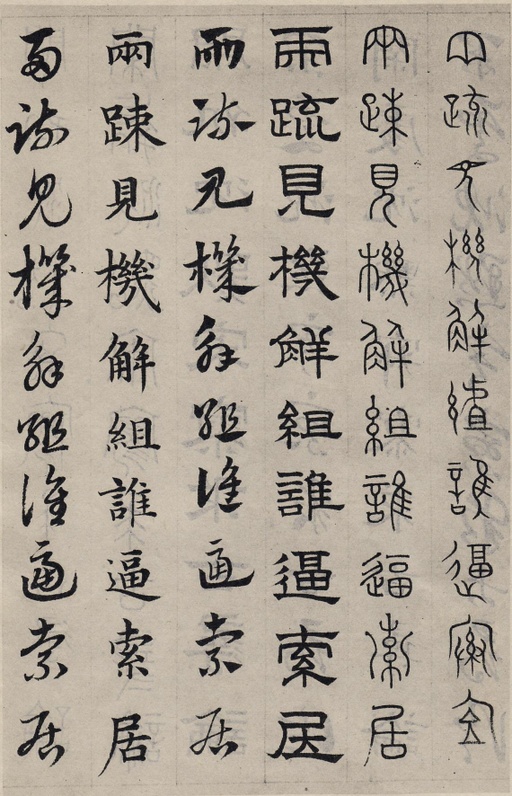 兩疏見機解組誰逼索居
兩疎見機解組誰逼索居
兩疏見機解組誰逼索居
兩疏見機解組誰逼索居
兩踈見機解組誰逼索居
兩疏見機解組誰逼索居